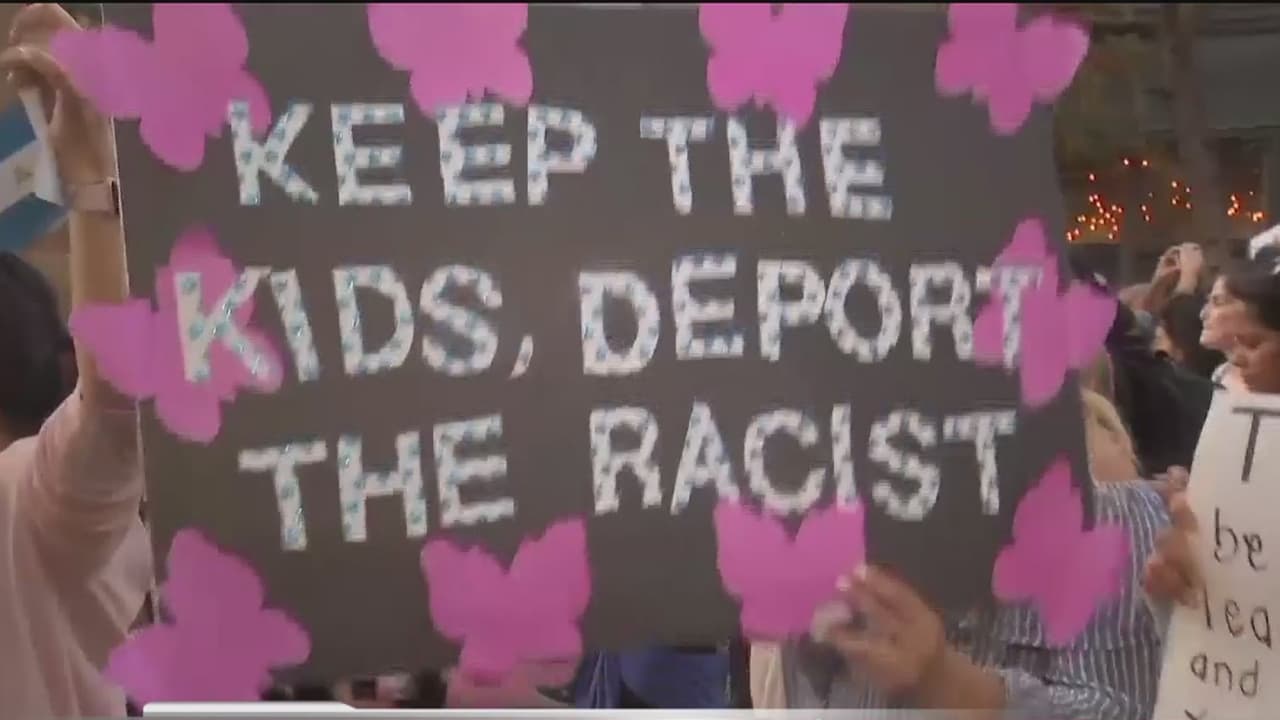 KEEP THE
KIDS, DEPORT
THE RACIST
T
be
lea
and